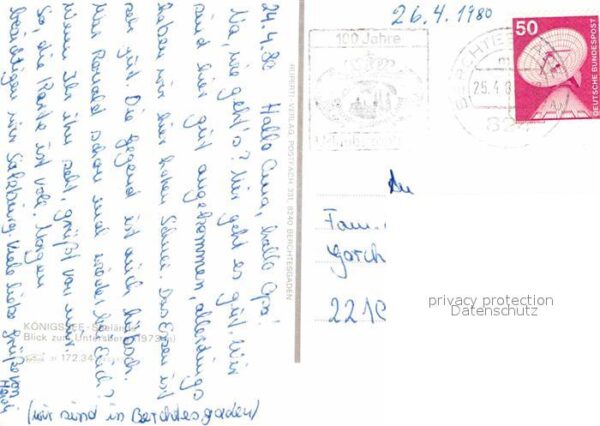 24.4.80 Hallo Oma, hallo Opa!
Na, wie geht's? Mir geht es gut. Wir
sind hier gut angekommen, allerdings
haben wir hier hohen Schnee. Das Essen ist
sehr gut. Die Gegend ist auch hübsch.
War Ronald schon mal wieder bei Euch?
Wenn Ihr ihn seht, grüßt von mir.
So, die Karte ist voll. Morgen
besichtigen wir Salzburg. Viele liebe Grüße von
(wir sind in Berchtesgaden)
KÖNIGSSEE - Seelände
Blick zum Untersberg (1973 m)
172.34
VERLAG POSTFACH 331, 8240 BERCHTESGADEN
26.4.1980
100 Jahre
BERCHTESGADEN
25.4.8
50
DEUTSCHE BUNDESPOST
An
Fam.
Gorch
221
privacy protection
Datenschutz